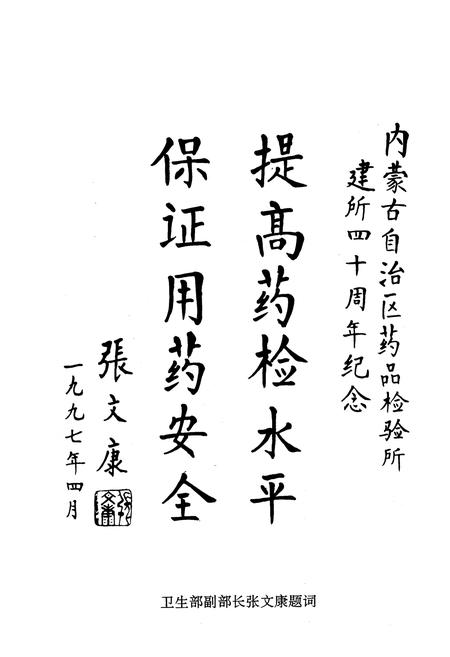 内蒙古自治区药品检验所
建所四十周年纪念
提高药检水平
保证用药安全
張文康
一九九七年四月
张文康
卫生部副部长张文康题词